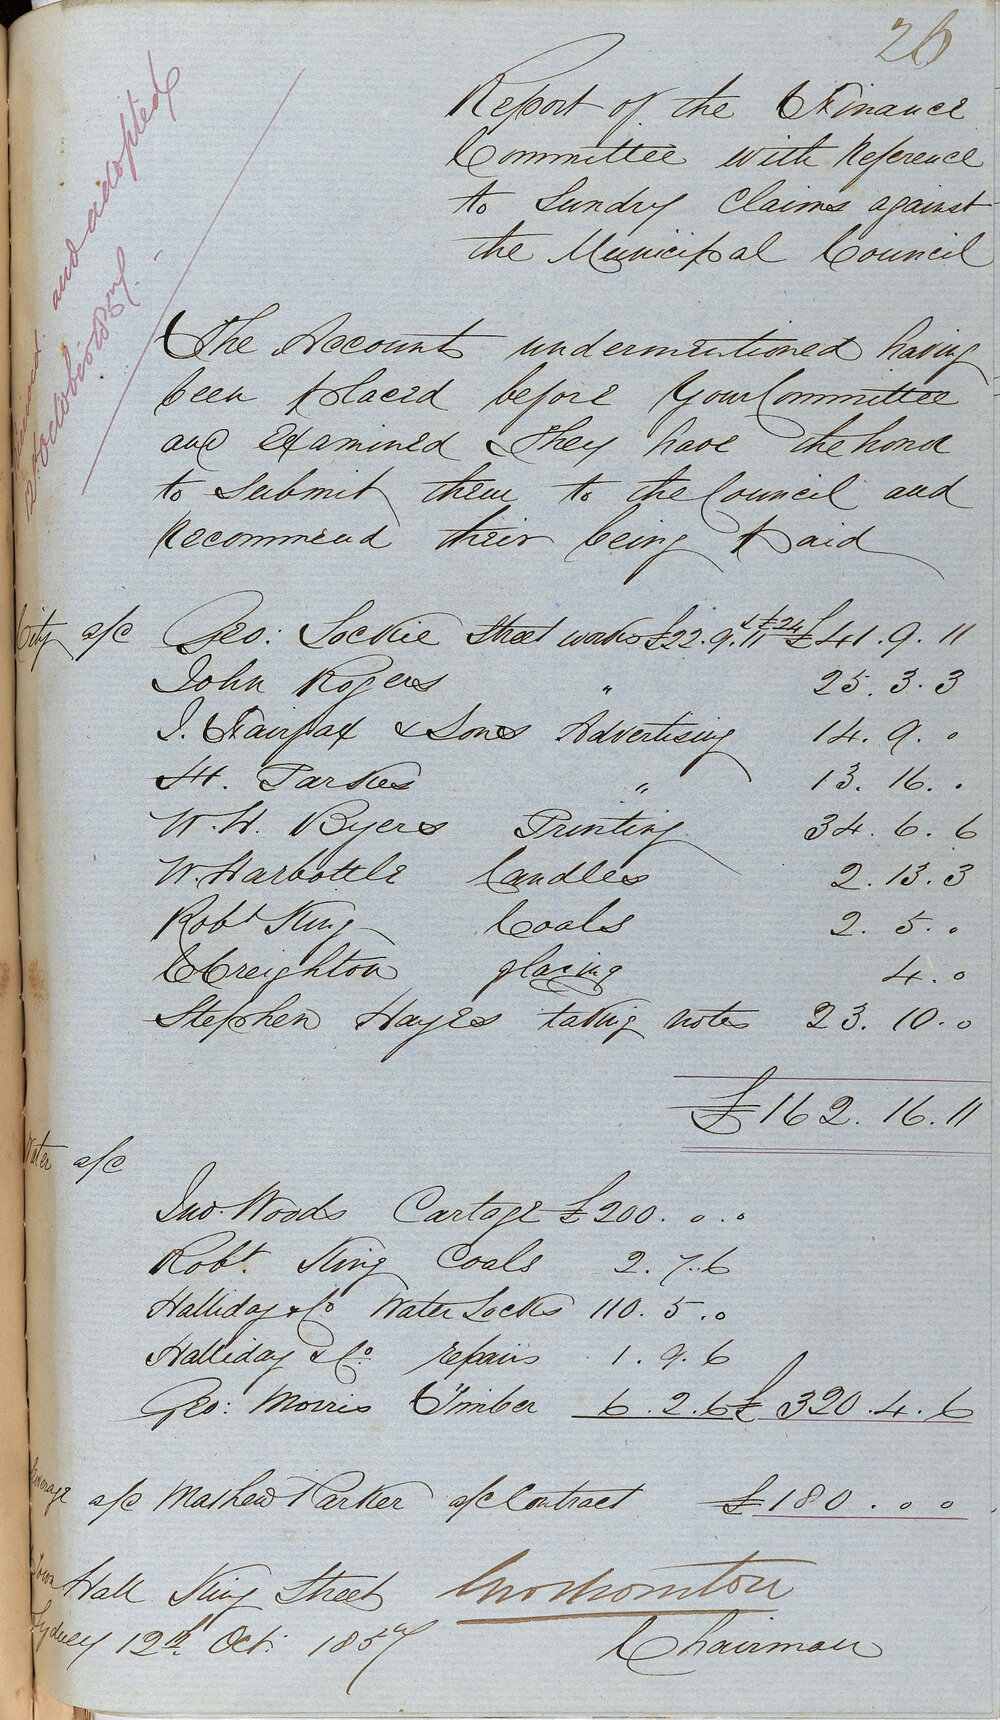 26
Report of the Finance
Committee with Reference
to Sundry Claims against
the Municipal Council
and adopted
12th October 1857.
The Accounts undermentioned having
been placed before Your Committee
and Examined & they have the honor
to submit them to the Council and
Recommend their being paid
City a/c Geo: Lockie Street works £22.9.11 & £24 £41.9.11
John Rogers " 25.3.3
J. Fairfax & Sons Advertising 14.9.0
H. Parkes " 13.16.0
W. H. Byers Printing 34.6.6
W. Harbottle Candles 2.13.3
Robt King Coals 2.5.0
C Creighton glazing 4.0
Stephen Hayes taking notes 23.10.0
£162.16.11
Water a/c
Jno. Woods Cartage £200.0.0
Robt. King Coals 2.7.6
Halliday & Co Water Locks 110.5.0
Halliday & Co. repairs 1.9.6
Geo: Morris Timber 6.2.6 £320.4.6
Sewerage a/c Mathew Parker a/c Contract £180.0.0
Town Hall King Street
Sydney 12th Oct. 1857
Geo Thornton
Chairman